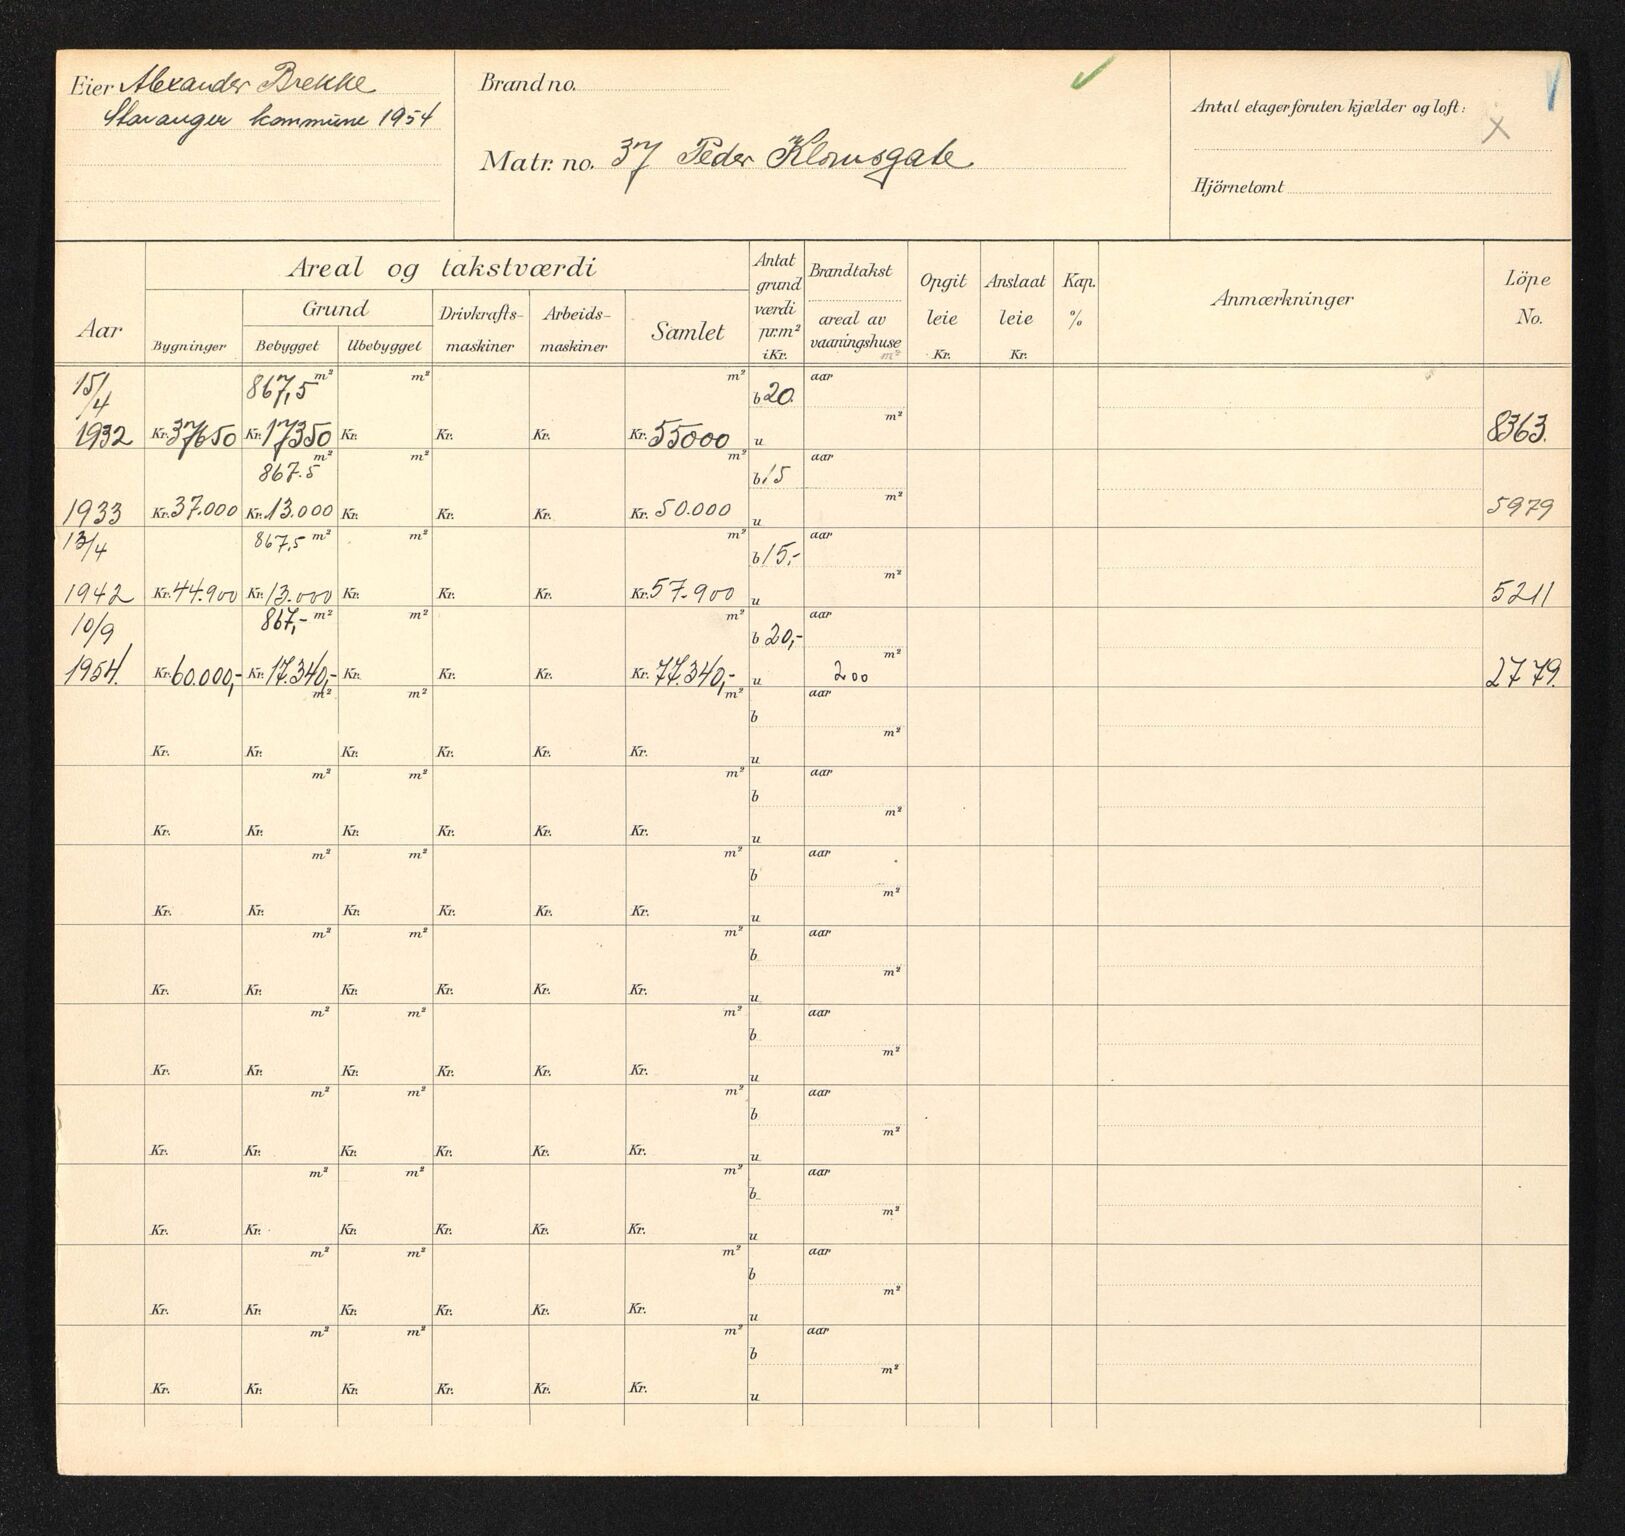 Eier Alexander Brekke
Stavanger kommune 1954
Brand no.
Matr. no. 37 Peder Klowsgate
Antal etager foruten kjælder og loft: X
Hjörnetomt
Aar
Areal og takstværdi
Grund
Bygninger
Bebygget
Ubebygget
Drivkrafts-
maskiner
Arbeids-
maskiner
Samlet
Antat
grund
værdi
pr. m²
i Kr.
Brandtakst
areal av
vaaningshuse
m²
Opgit
leie
Kr.
Anslaat
leie
Kr.
Kap.
%
Anmærkninger
Löpe
No.
15/4 867,5 m² m² m² b 20. aar
m²
1932 Kr. 37650 Kr. 17350 Kr. Kr. Kr. Kr. 55000 u 8363.
867.5 m² m² m² b 15 aar
m²
1933 Kr. 37.000 Kr. 13.000 Kr. Kr. Kr. Kr. 50.000 u 5979
13/4 867,5 m² m² m² b 15,- aar
m²
1942 Kr. 44.900 Kr. 13.000 Kr. Kr. Kr. Kr. 57.900 u 5211
10/9 867,- m² m² m² b 20,- aar
m²
1954. Kr. 60.000,- Kr. 17.340,- Kr. Kr. Kr. Kr. 77.340,- u 200 2779.
m² m² m² b aar
m²
Kr. Kr. Kr. Kr. Kr. Kr. u
m² m² m² b aar
m²
Kr. Kr. Kr. Kr. Kr. Kr. u
m² m² m² b aar
m²
Kr. Kr. Kr. Kr. Kr. Kr. u
m² m² m² b aar
m²
Kr. Kr. Kr. Kr. Kr. Kr. u
m² m² m² b aar
m²
Kr. Kr. Kr. Kr. Kr. Kr. u
m² m² m² b aar
m²
Kr. Kr. Kr. Kr. Kr. Kr. u
m² m² m² b aar
m²
Kr. Kr. Kr. Kr. Kr. Kr. u
m² m² m² b aar
m²
Kr. Kr. Kr. Kr. Kr. Kr. u
m² m² m² b aar
m²
Kr. Kr. Kr. Kr. Kr. Kr. u